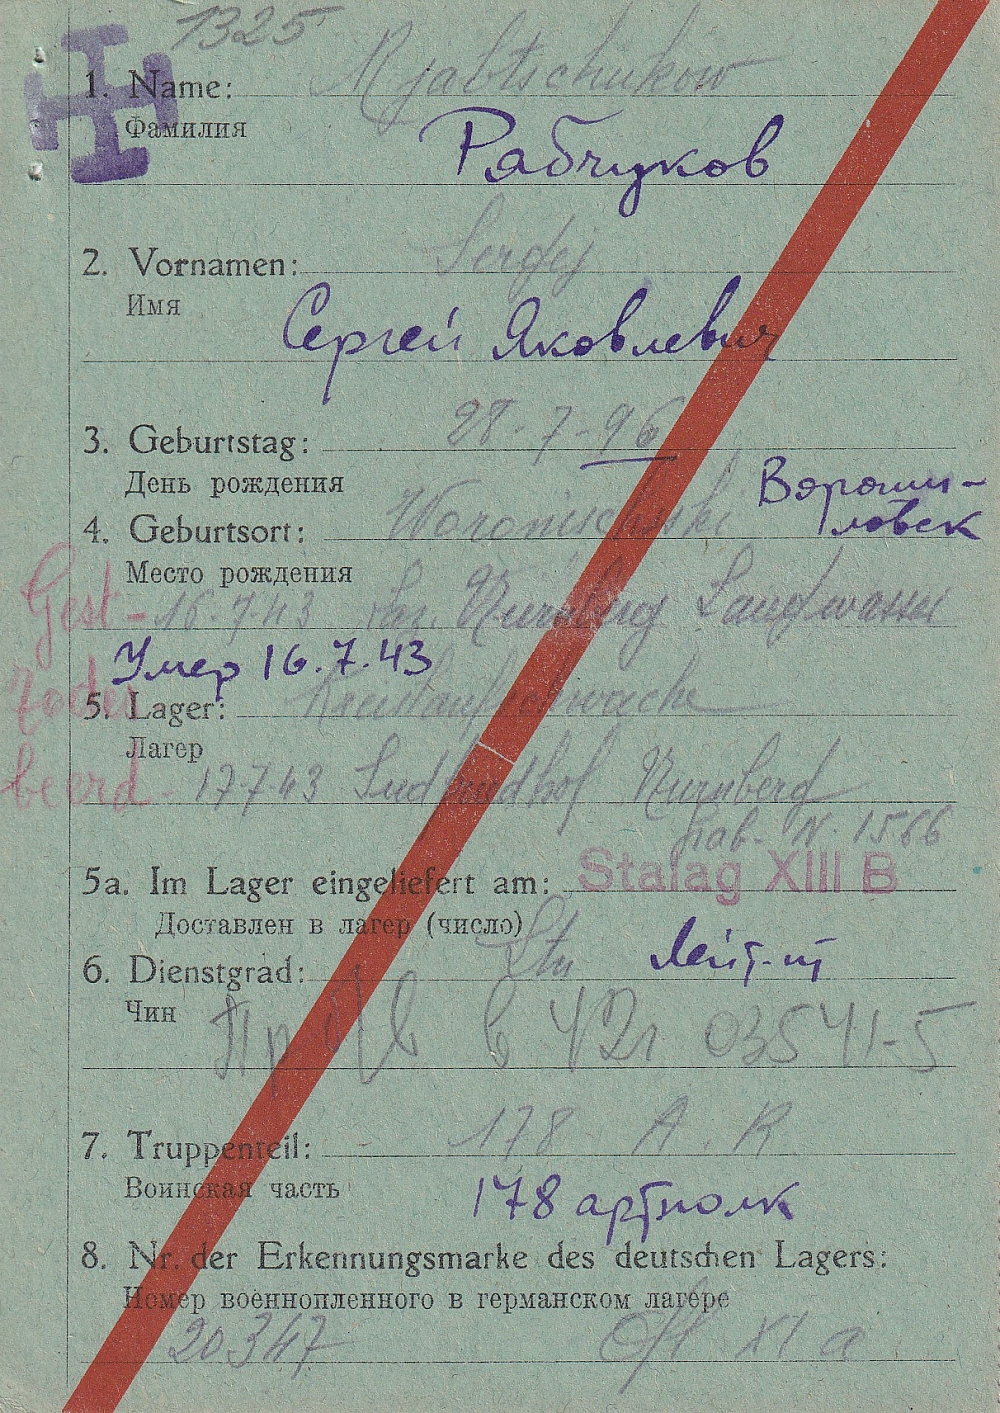 1325
1. Name: Rjabtschukow
Фамилия
Рябчуков
2. Vornamen: Sergej
Имя
Сергей Яковлевич
3. Geburtstag: 28.7-96
День рождения
Вороши-
4. Geburtsort:
ловск
Место рождения
Gest- 16.7.43 Nürnberg Langwasser
Умер 16.7.43
5. Lager: Kreislaufschwäche
Лагер
beerd- 17.7.43 Südfriedhof Nürnberg
N. 1566
Stalag XIII B
5a. Im Lager eingeliefert am:
Доставлен в лагер (число)
6. Dienstgrad: Ltn Лейт-т
Чин
в 42г 03541-5
7. Truppenteil: 178 A.R
Воинская часть
178 артполк
8. Nr. der Erkennungsmarke des deutschen Lagers:
Номер военнопленного в германском лагере
20347 Off XI a